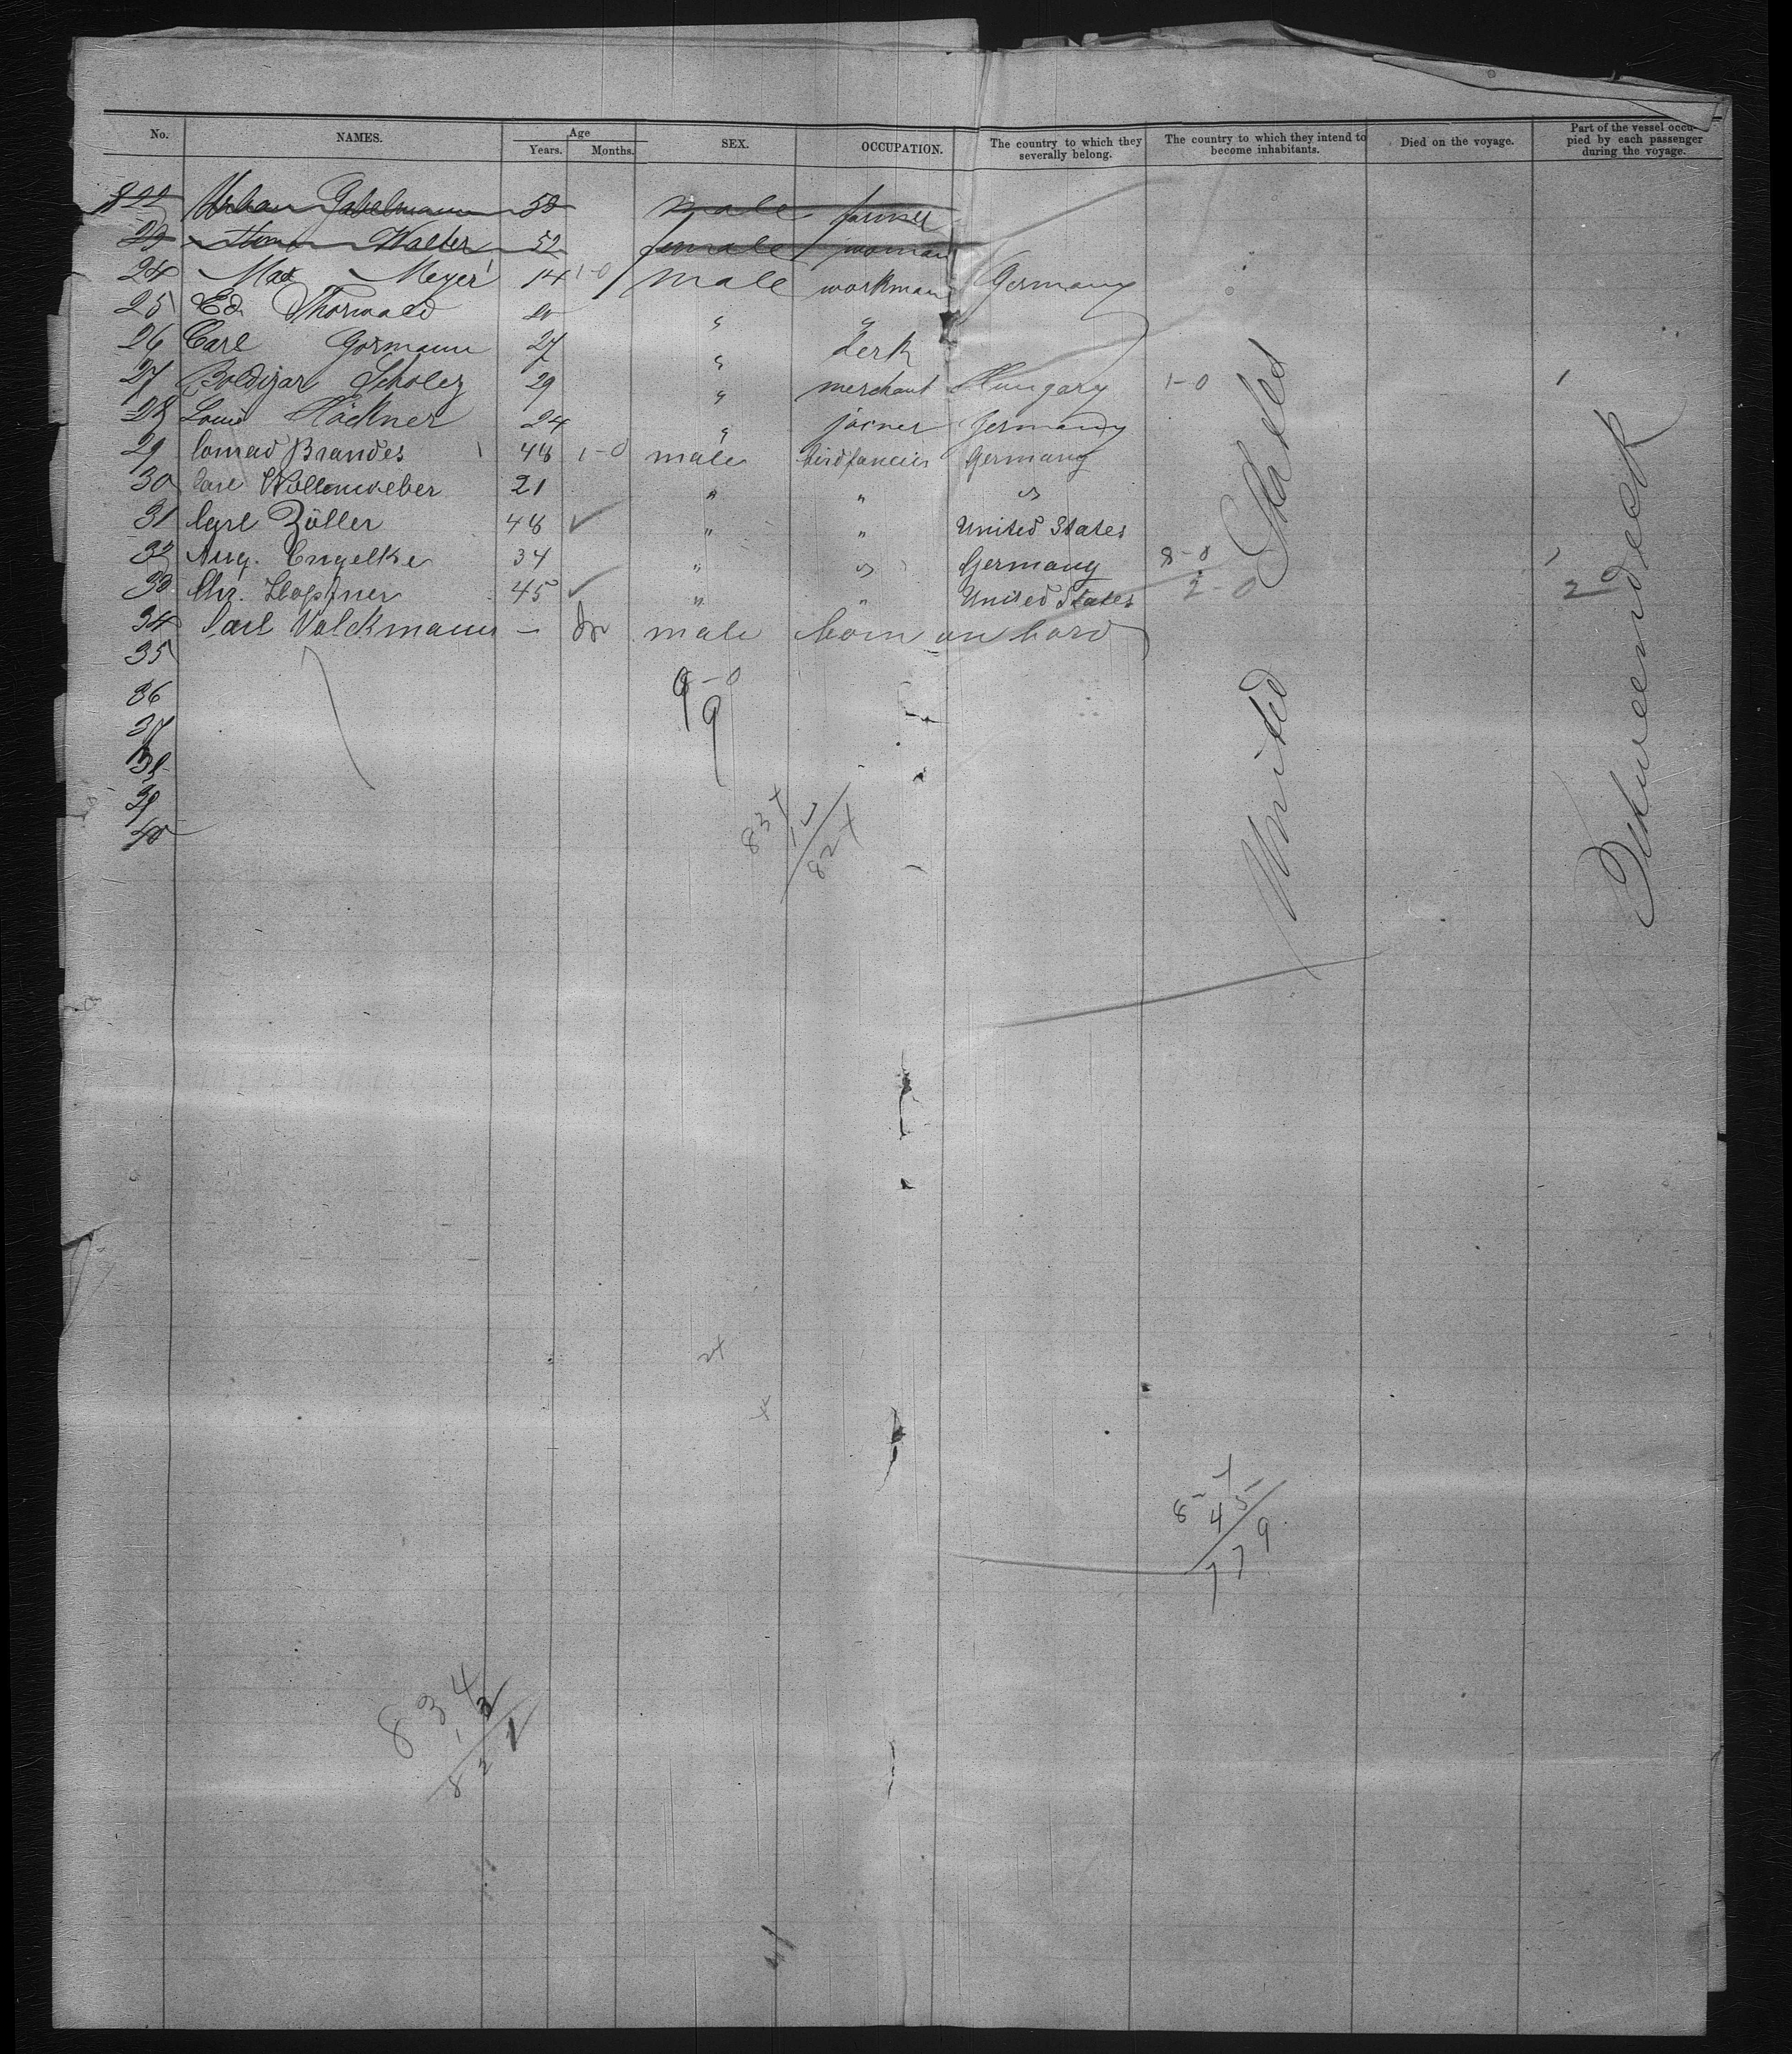 No. NAMES. Age Years. Months. SEX. OCCUPATION. The country to which they severally belong. The country to which they intend to become inhabitants. Died on the voyage. Part of the vessel occupied by each passenger during the voyage.
822 Gabelmann 53 male farmer
23 Walter 52 female woman
24 Max Meyer 14 1-0 male workman Germany
25 Ed. Thorwald 20 " "
26 Carl Gormann 27 " clerk
27 Boldizar Scholez 29 " merchant Hungary 1-0 1
28 Louis Höckner 24 " joiner Germany
29 Conrad Brandes 48 1-0 male birdfancier Germany
30 Carl Wollenweber 21 " " "
31 Carl Zöller 48 ✓ " " United States
32 Aug. Engelke 34 " " Germany 8-0 1
33 Chr. Höpfner 45 ✓ " " United States 2-0 2
34 Carl Volckmann – male born on bord
35
36
37
38
39
40
United States
Betweendeck
9-0
9
834
824
24
4
45
779
834
821